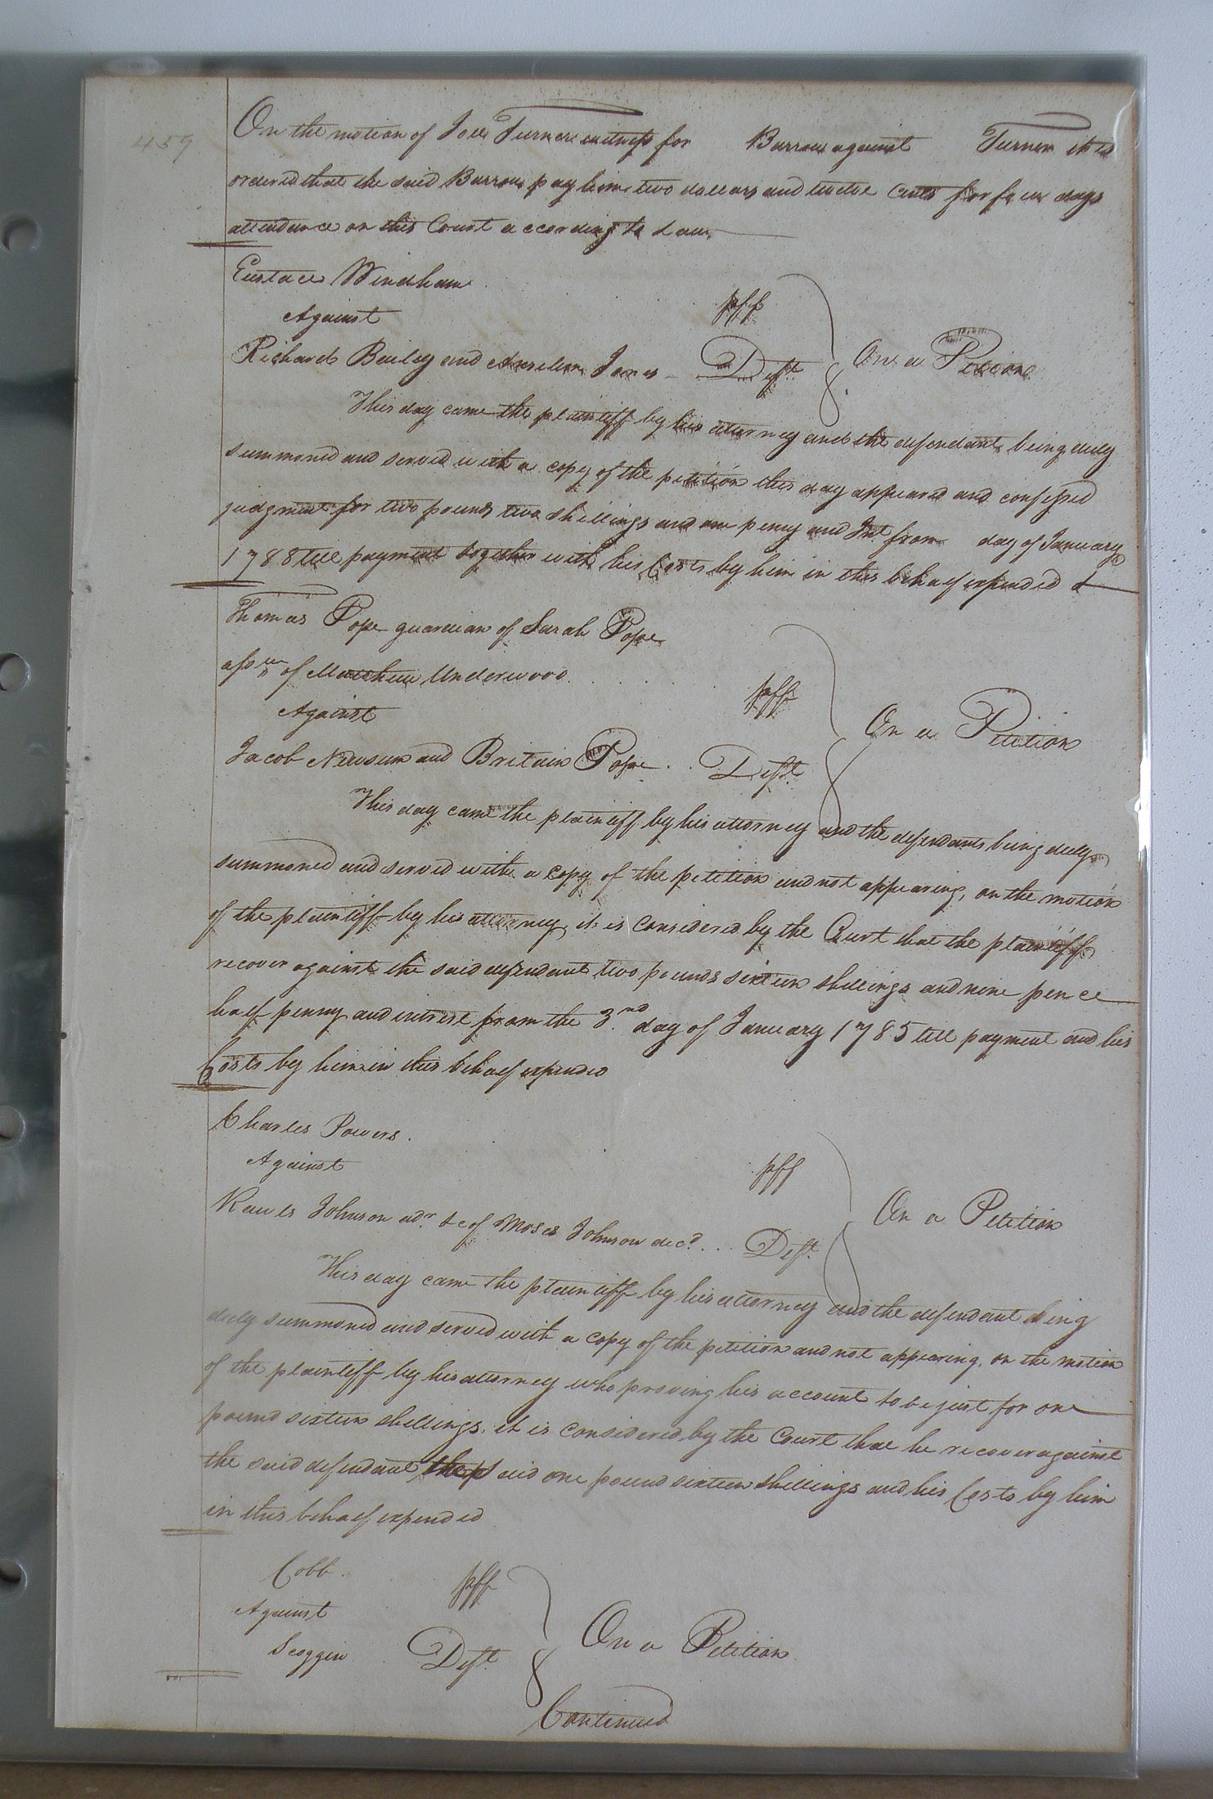 459
On the motion of Joel Turner witness for Barrow against Turner it is
ordered that the said Barrow pay him two dollars and twelve Cents for four days
attendance on this Court according to Law.
Eustace Windham
pff
Against
Richard Bailey and Anselm Jones Deft. On a Petition
This day came the plaintiff by his attorney and the defendants being duly
summoned and served with a copy of the petition this day appeared and confessed
judgment for two pounds two shillings and one penny and Int from day of January
1788 till payment together with his Costs by him in this behalf expended &
Thomas Pope guardian of Sarah Pope
assee of Matthew Underwood pff
Against On a Petition
Jacob Newsum and Britain Pope Deft.
This day came the plaintiff by his attorney and the defendants being duly
summoned and served with a copy of the petition and not appearing, on the motion
of the plaintiff by his attorney, it is considered by the Court that the plaintiff
recover against the said defendant two pounds sixteen shillings and nine pence
half penny and interest from the 3nd day of January 1785 till payment and his
Costs by him in this behalf expended
Charles Powers.
Against pff
On a Petition
Rawls Johnson adr. &c of Moses Johnson decd. ... Deft.
This day came the plaintiff by his attorney and the defendant being
duly summoned and served with a copy of the petition and not appearing, on the motion
of the plaintiff by his attorney who proving his account to be just for one
pound sixteen shillings, it is considered by the Court that he recover against
the said defendant the said one pound sixteen shillings and his Costs by him
in this behalf expended
Cobb. pff
Against On a Petition
Scoggin Deft.
Continued